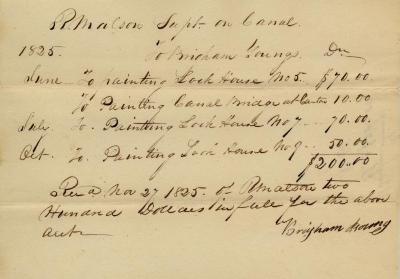 R. Matson Supt. on Canal
1825. To Brigham Young Dr
June To painting Lock House No 5. $70.00
To Painting Canal Bridge at 10.00
July To. Painting Lock House No 7 70.00
Oct. To. Painting Lock House No 9 50.00
$200.00
Rec'd Nov 27 1825. of R Matson two
Hundred Dollars in full for the above
acct
Brigham Young